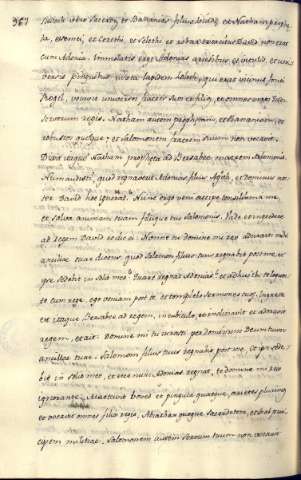 367
vero Sadoc, et Banaias filius Ioiadæ, et Nathan propheta,
et Semei, et Cerethi, et Felethi, et robur exercitus David non erat
cum Adonia. Immolatis ergo Adonias arietibus, et vitulis, et uni-
versis pinguibus iuxta lapidem Zoheleth, qui erat vicinus fonti
Rogel, vocavit universos fratres suos filios regis, et omnes viros Iuda
servos regis. Nathan autem prophetam, et Banaiam, et
robustos quosque, et Salomonem fratrem suum non vocavit.
Dixit itaque Nathan propheta ad Bersabee matrem Salomonis.
Num audisti, quod regnaverit Adonias filius Agith, et dominus nos-
ter David hoc ignorat? Nunc ergo veni accipe consilium a me,
et salva animam tuam filiique tui Salomonis. Vade et ingredere
ad regem David et dic ei. Nonne tu domine mi rex iurasti mihi
ancillæ tuæ dicens, quod Salomon filius tuus regnabit post me et
ipse sedebit in solio meo? Quare regnat Adonias? et adhuc ibi te loquen-
te cum rege, ego veniam post te, et complebo sermones tuos. Ingressa
est itaque Bersabee ad regem, in cubiculo, et inclinavit et adoravit
regem, et ait. Domine mi tu iurasti per dominum Deum tuum
ancillæ tuæ. Salomon filius tuus regnabit post me, et ipse sede-
bit in solio meo, et ecce nunc Adonias regnat, te domine mi rex
ignorante. Mactavit boves et pinguia quæque, arietes plurimos
et vocavit omnes filios regis, Abiathar quoque sacerdotem, et Ioab prin-
cipem militiæ. Salomonem autem servum tuum non vocavit